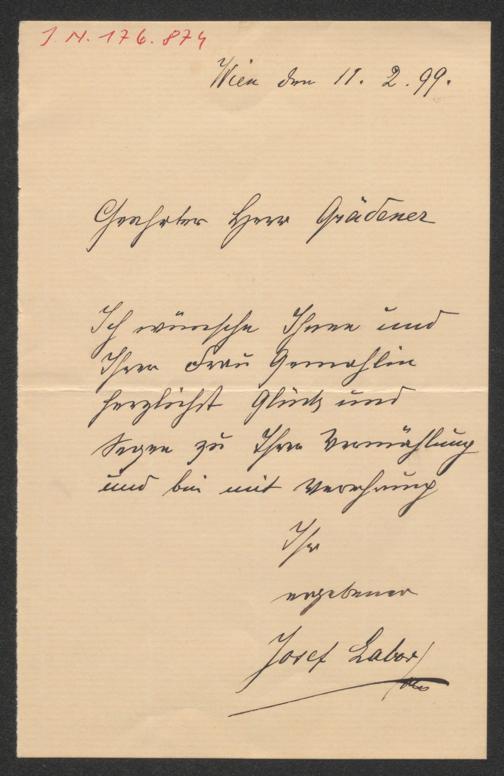 I. N. 176.874
Wien den 11. 2. 99.
Geehrter Herr Grädener
Ich wünsche Ihnen und
Ihrer Frau Gemahlin
herzlichst Glück und
Segen zu Ihrer Vermählung
und bin mit Verehrung
Ihr
ergebener
Josef Labor